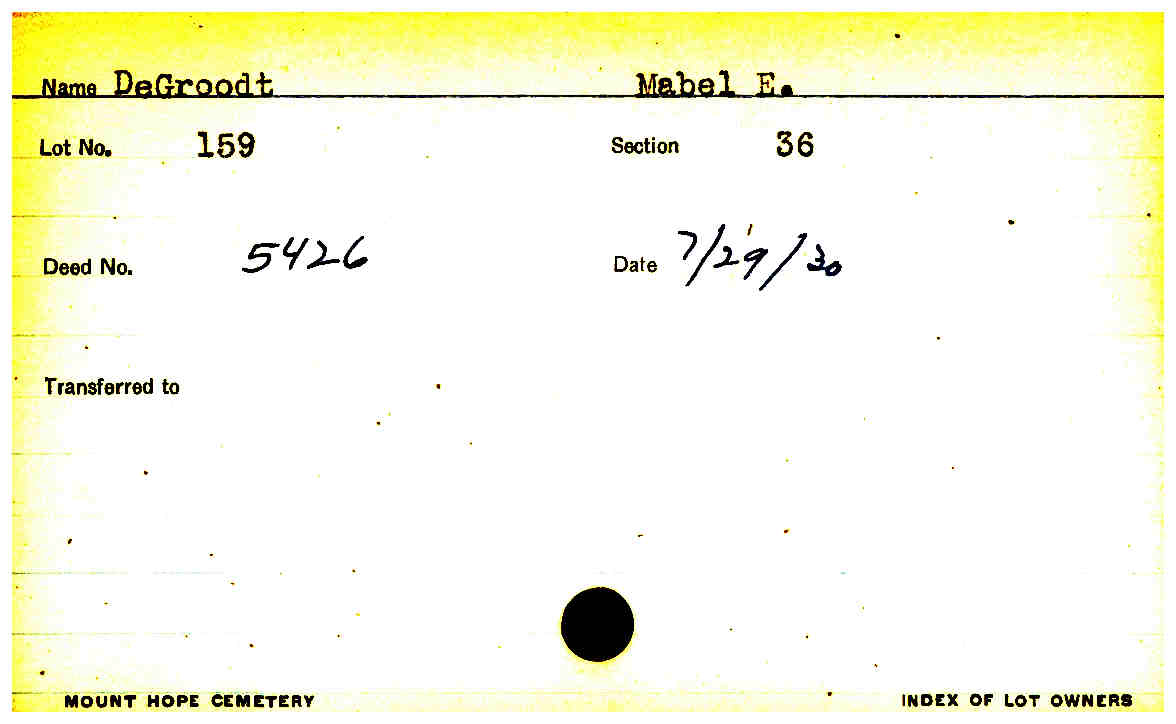 Name DeGroodt Mabel E.
Lot No. 159 Section 36
Deed No. 5426 Date 7/29/30
Transferred to
MOUNT HOPE CEMETERY INDEX OF LOT OWNERS